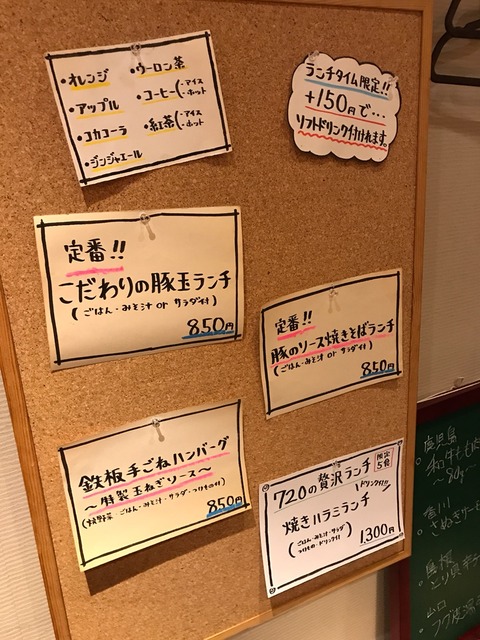 ・オレンジ
・アップル
・コカコーラ
・ジンジャエール
・ウーロン茶
・コーヒー(・アイス ・ホット
・紅茶(・アイス ・ホット
ランチタイム限定!!
+150円で…
ソフトドリンク付けれます。
定番!!
こだわりの豚玉ランチ
(ごはん・みそ汁 or サラダ付)
850円
定番!!
豚のソース焼きそばランチ
(ごはん・みそ汁 or サラダ付)
850円
鉄板手ごねハンバーグ
〜特製玉ねぎソース〜
(焼野菜・ごはん・みそ汁・サラダ・つけもの付)
850円
720の贅沢ランチ
限定5食
ドリンク付!!
焼きハラミランチ
(ごはん・みそ汁・サラダ
つけもの・ドリンク付)
1,300円
鹿児島
香川
島根
山口